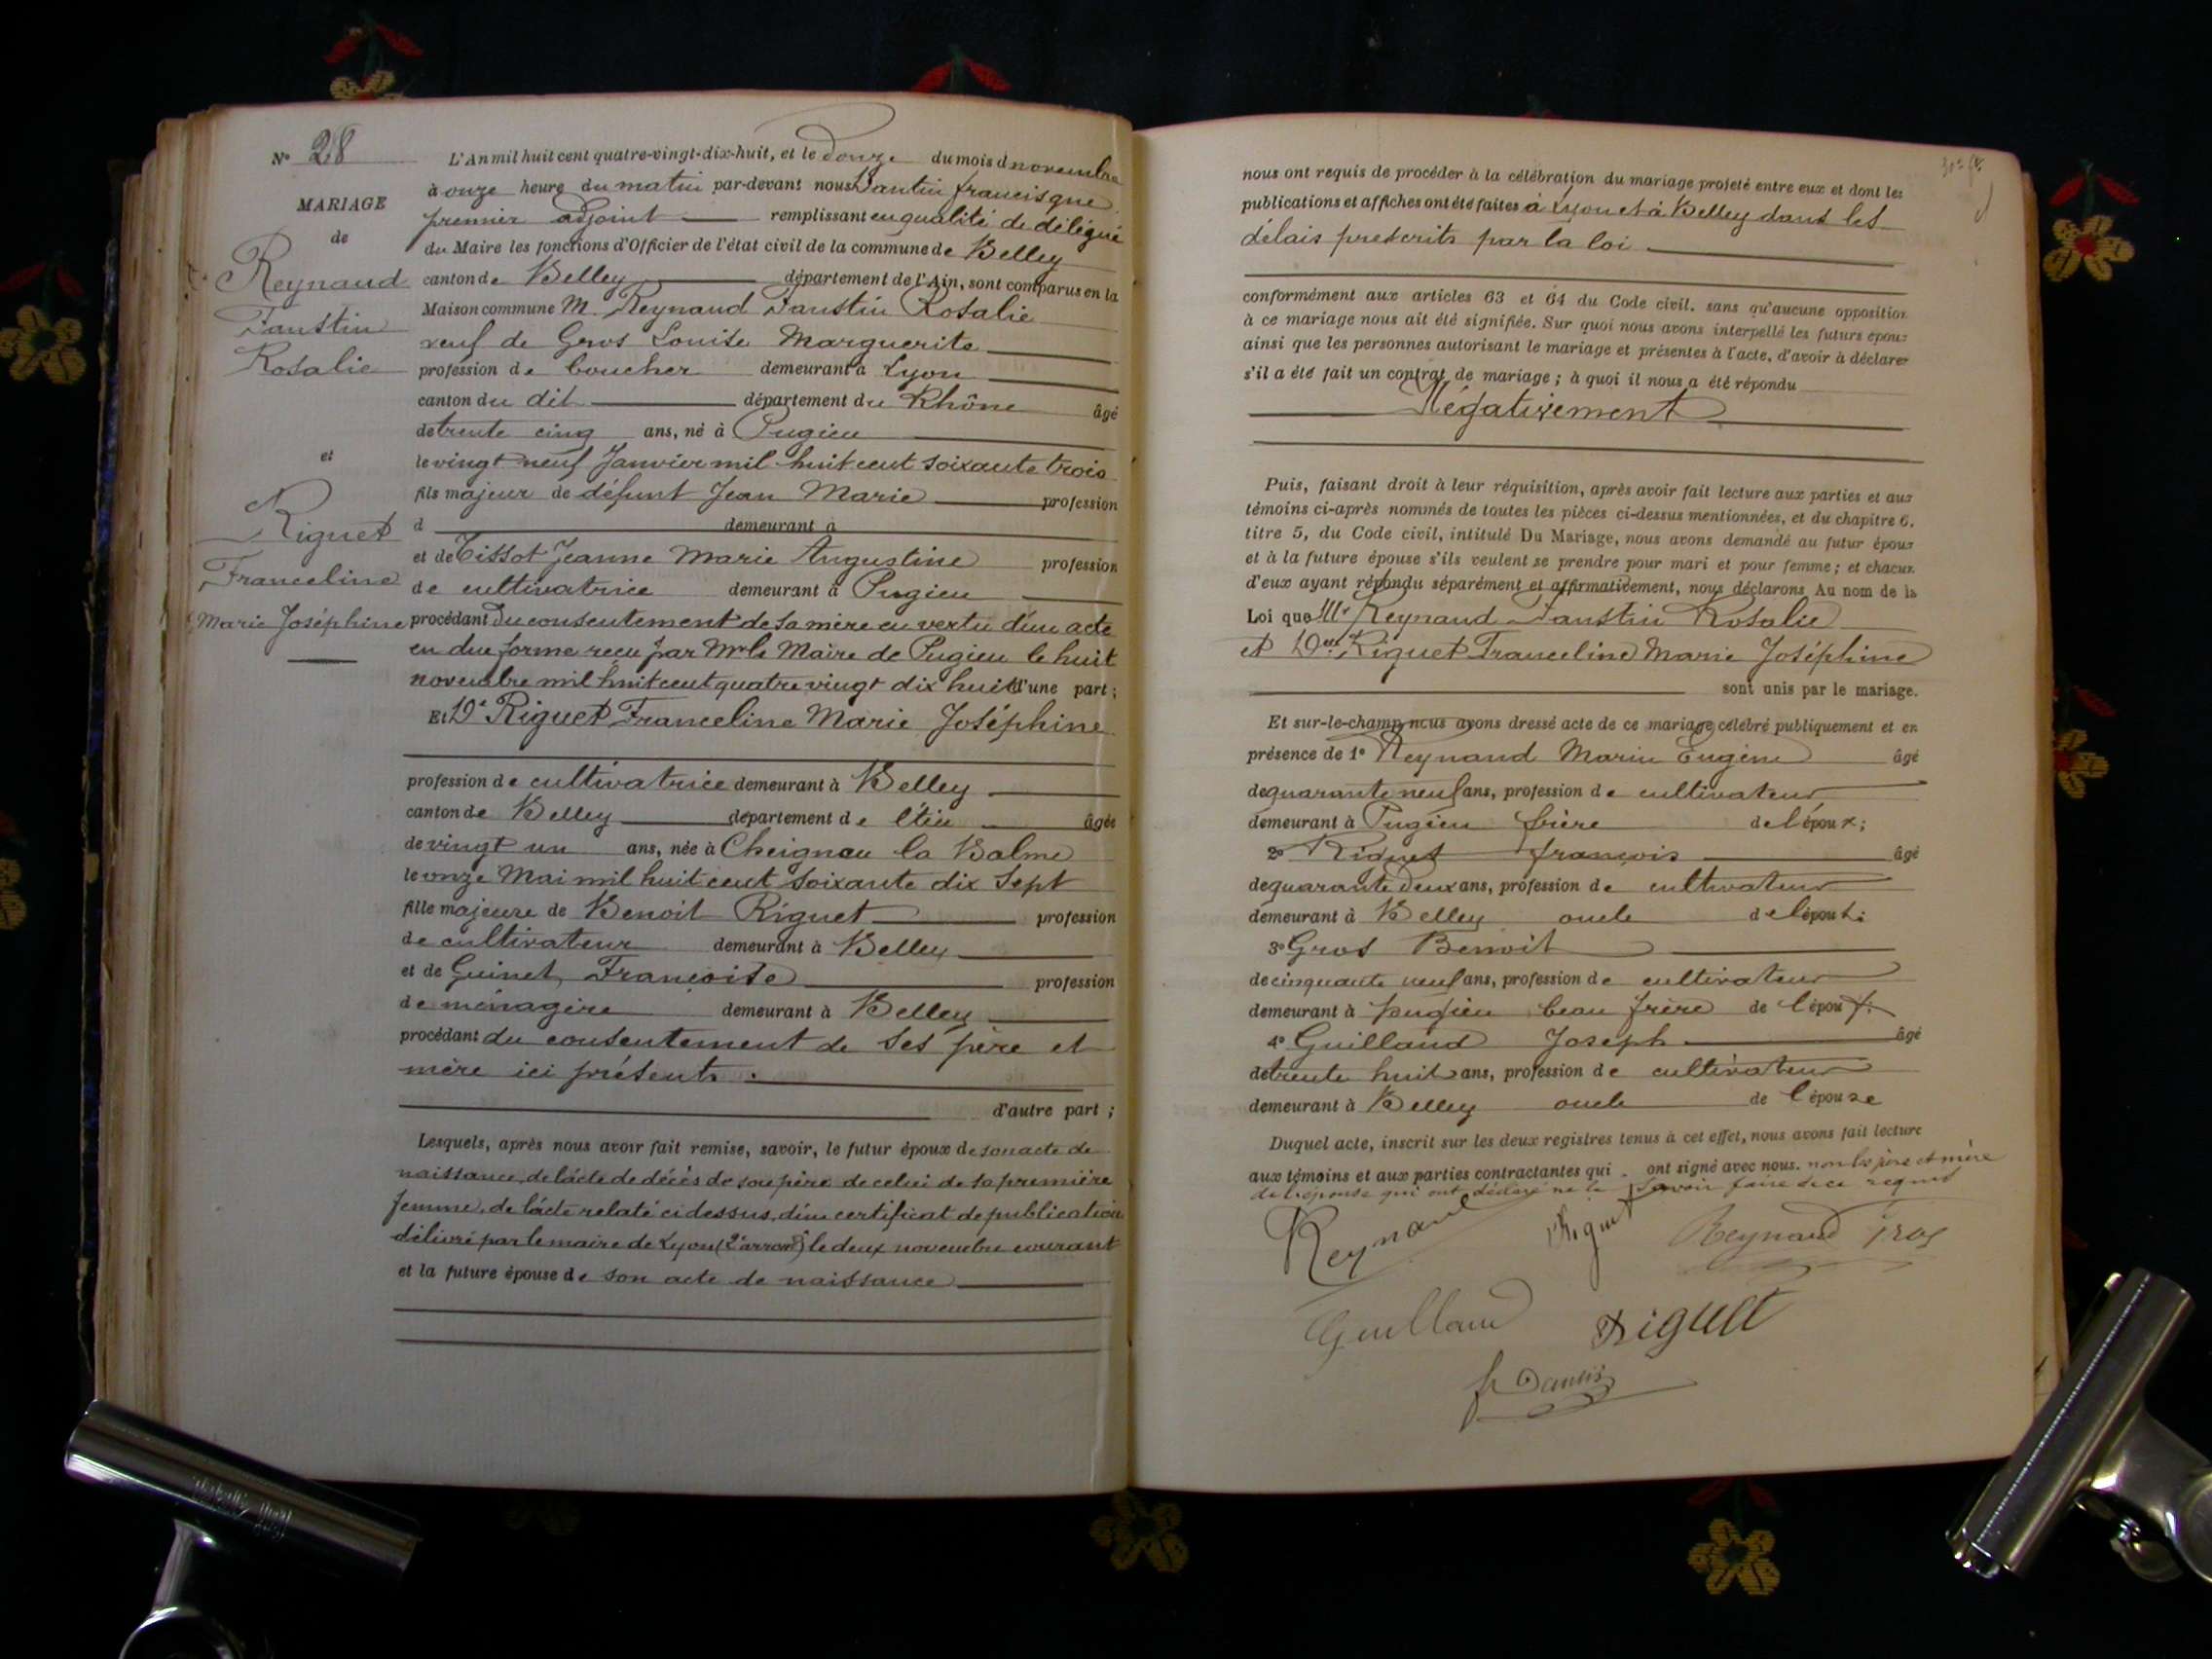 N° 28
MARIAGE
de
Reynaud
Faustin
Rosalie
et
Riguet
Franceline
Marie Joséphine
L'An mil huit cent quatre-vingt-dix-huit, et le Douze du mois d novembre
à onze heure du matin par-devant nous Dantin francisque
premier adjoint remplissant en qualité de délégué
du Maire les fonctions d'Officier de l'état civil de la commune de Belley
canton de Belley département de l'Ain, sont comparus en la
Maison commune M. Reynaud Faustin Rosalie
veuf de Gros Louise Marguerite
profession de boucher demeurant à Lyon
canton du dit département du Rhône âgé
de trente cinq ans, né à Pugieu
le vingt neuf Janvier mil huit cent soixante trois
fils majeur de défunt Jean Marie profession
d demeurant à
et de Tissot Jeanne Marie Augustine profession
de cultivatrice demeurant à Pugieu
procédant du consentement de sa mère en vertu d'un acte
en due forme reçu par Mr le Maire de Pugieu le huit
novembre mil huit cent quatre vingt dix huit d'une part ;
Et Dlle Riguet Franceline Marie Joséphine
profession de cultivatrice demeurant à Belley
canton de Belley département de l'Ain âgée
de vingt un ans, née à Cheignieu la Balme
le onze Mai mil huit cent soixante dix sept
fille majeure de Benoit Riguet profession
de cultivateur demeurant à Belley
et de Guinet Françoise profession
de ménagère demeurant à Belley
procédant du consentement de ses père et
mère ici présents
d'autre part ;
Lesquels, après nous avoir fait remise, savoir, le futur époux de son acte de
naissance, de l'acte de décès de son père de celui de sa première
femme, de l'acte relaté ci dessus, d'un certificat de publication
délivré par le maire de Lyon (2e arrondt) le deux novembre courant
et la future épouse de son acte de naissance
nous ont requis de procéder à la célébration du mariage projeté entre eux et dont les
publications et affiches ont été faites à Lyon et à Belley dans les
délais prescrits par la loi
conformément aux articles 63 et 64 du Code civil. sans qu'aucune opposition
à ce mariage nous ait été signifiée. Sur quoi nous avons interpellé les futurs époux
ainsi que les personnes autorisant le mariage et présentes à l'acte, d'avoir à déclarer
s'il a été fait un contrat de mariage ; à quoi il nous a été répondu
Négativement
Puis, faisant droit à leur réquisition, après avoir fait lecture aux parties et aux
témoins ci-après nommés de toutes les pièces ci-dessus mentionnées, et du chapitre 6.
titre 5, du Code civil, intitulé Du Mariage, nous avons demandé au futur époux
et à la future épouse s'ils veulent se prendre pour mari et pour femme ; et chacun
d'eux ayant répondu séparément et affirmativement, nous déclarons Au nom de la
Loi que Mr Reynaud Faustin Rosalie
et Dlle Riguet Franceline Marie Joséphine
sont unis par le mariage.
Et sur-le-champ nous avons dressé acte de ce mariage célébré publiquement et en
présence de 1° Reynaud Marin Eugène âgé
de quarante neuf ans, profession de cultivateur
demeurant à Pugieu frère de l'époux ;
2° Riguet françois âgé
de quarante deux ans, profession de cultivateur
demeurant à Belley oncle de l'épouse
3° Gros Benoit
de cinquante neuf ans, profession de cultivateur
demeurant à pugieu beau frère de l'époux
4° Guilland Joseph âgé
de trente huit ans, profession de cultivateur
demeurant à Belley oncle de l'épouse
Duquel acte, inscrit sur les deux registres tenus à cet effet, nous avons fait lecture
aux témoins et aux parties contractantes qui ont signé avec nous. non les père et mère
de l'épouse qui ont déclaré ne le savoir faire de ce requis
Reynaud Riguet Reynaud Gros
Guilland Riguet
f Dantin